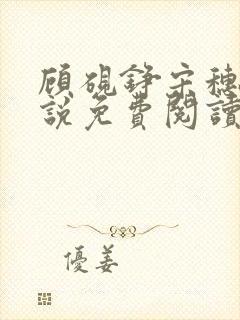 顧硯錚宋穗
說免費閱讀
優姜